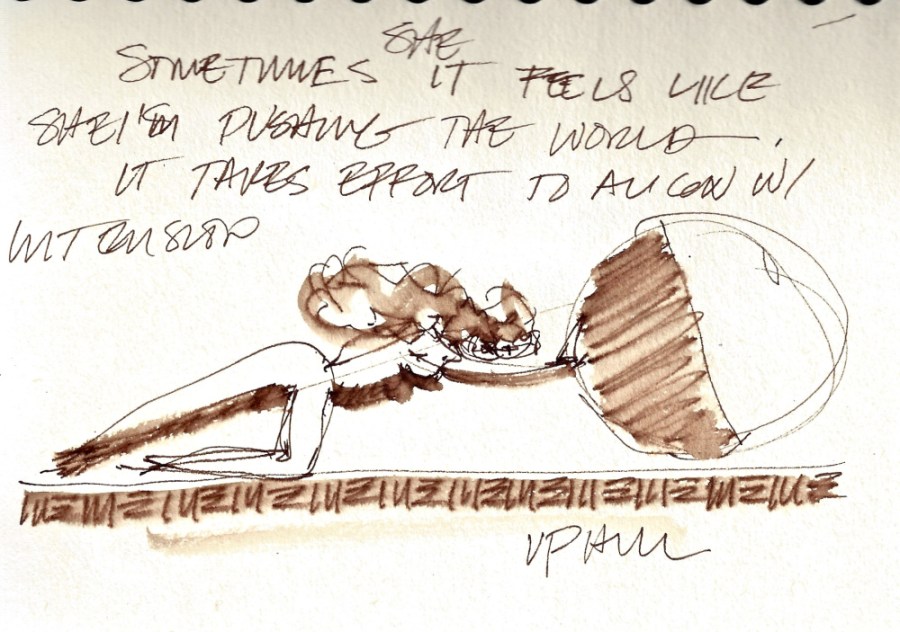 SHE
SOMETIMES IT FEELS LIKE
SHE I'M PUSHING THE WORLD.
IT TAKES EFFORT TO ALIGN W/
UPHILL